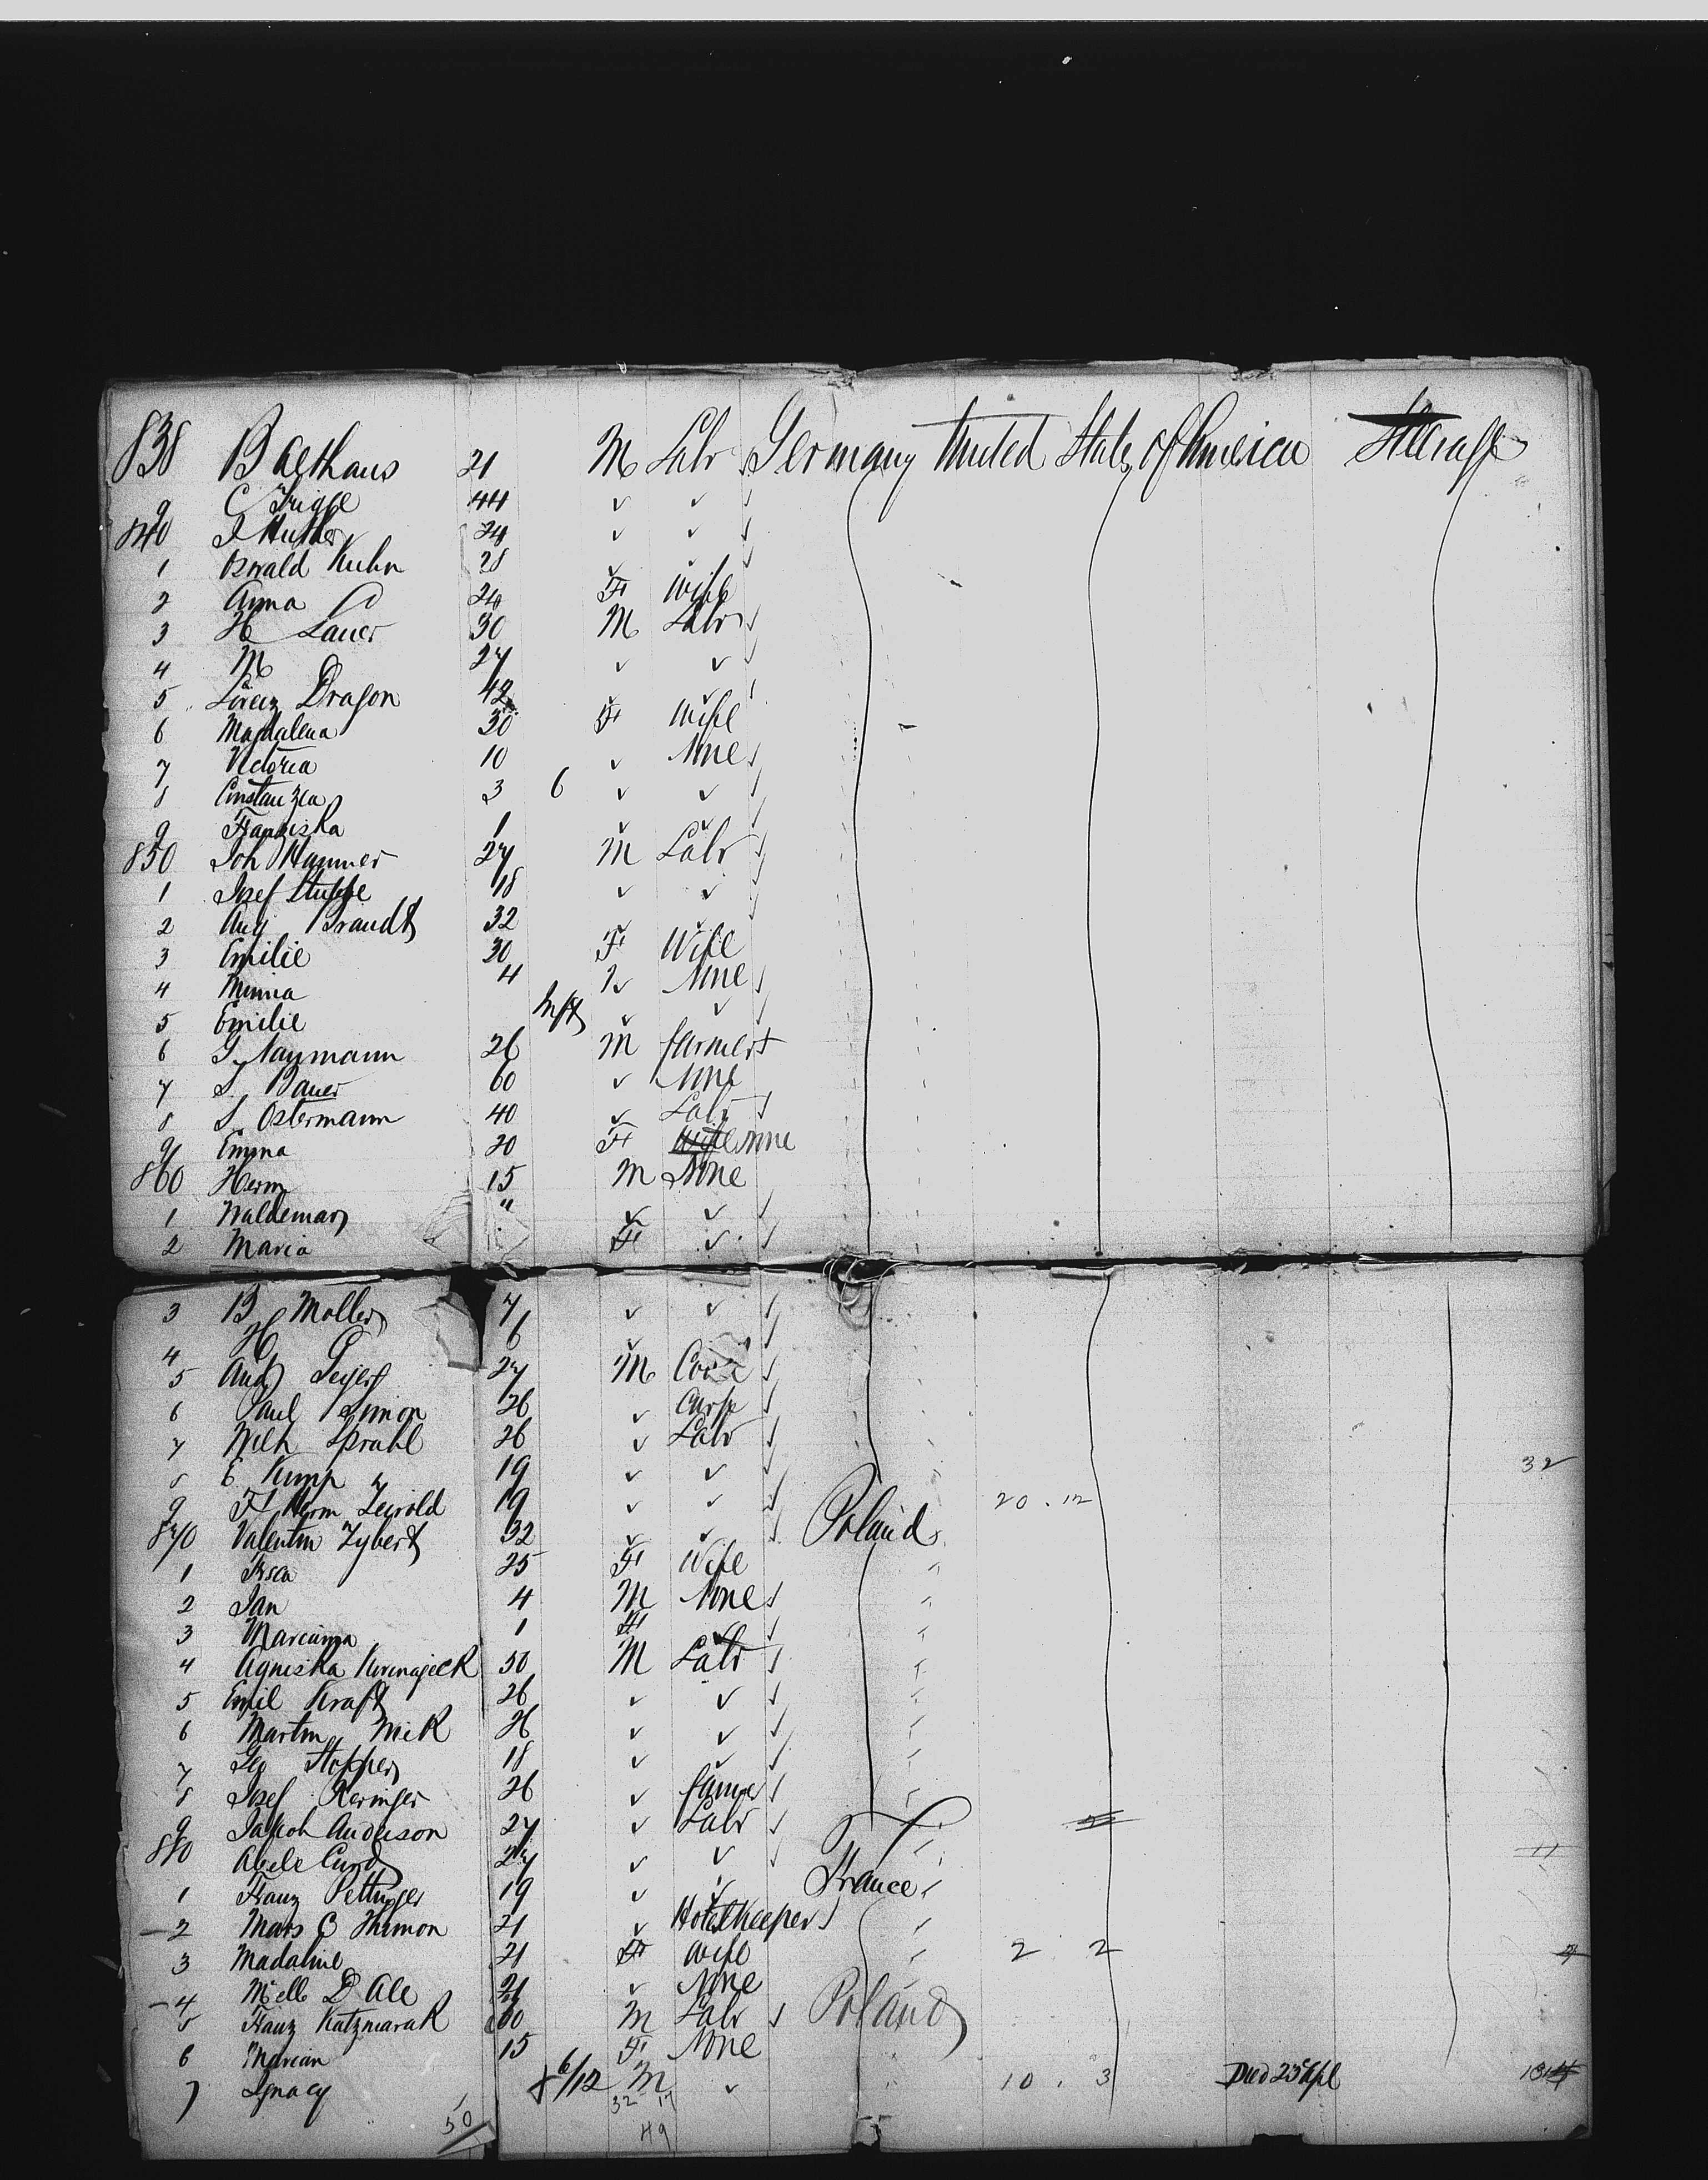 838 Balthaus 21 M Labr Germany United States of America Steerage
9 C 44 ✓ ✓
840 24 ✓ ✓
1 Oswald Kuhn 28 ✓
2 Anna 24 F Wife
3 H Lauer 30 M Labr
4 M 27 ✓ ✓
5 Lorenz Dragon 42 ✓
6 Magdalena 30 F Wife
7 Victoria 10 ✓ None
8 Constanzia 3 6 ✓ ✓
9 Franziska 1 ✓ ✓
850 Joh Hammer 27 M Labr
1 Josef 18 ✓ ✓
2 Aug Brandt 32 ✓
3 Emilie 30 F Wife
4 Minna 4 ✓ None
5 Emilie Inft ✓ ✓
6 Naymann 26 M farmer
7 Bauer 60 ✓ None
8 S. Ostermann 40 ✓ Labr
9 Emma 20 F Wife None
860 Herm 15 M None
1 Waldemar " ✓ ✓
2 Maria F ✓
3 B Moller 7 ✓ ✓
4 H 6 ✓
5 Aud 27 M
6 Paul Simon 26 ✓ Carp
7 Wilh Sprahl 26 ✓ Labr
8 E Kump 19 ✓ ✓ 32
9 F Herm Zeirold 19 ✓ ✓ 20 . 12
870 Valentin Zybert 32 ✓ ✓ Poland
1 25 F Wife
2 Jan 4 M None
3 Marcianna 1 F ✓
4 Agniska 50 M Labr
5 Emil Kraft 26 ✓ ✓
6 Martin Mick 26 ✓ ✓
7 Geo Stopper 18 ✓ ✓
8 Josef Keringer 26 ✓ farmer
9 Jakob Anderson 27 ✓ Labr
880 Abele Curd 27 ✓ ✓ 11
1 Franz Pettinger 19 ✓ ✓ France
2 Mars C Thimon 21 ✓ Hotelkeeper
3 Madaline 21 F Wife 2 2
4 Melle D Ale 21 ✓ None
5 Franz Katzmarak 60 M Labr Poland
6 Marian 15 F None
7 Ignacy 6/12 M ✓ 10 . 3 Died 25 Apl
50 32 17
49